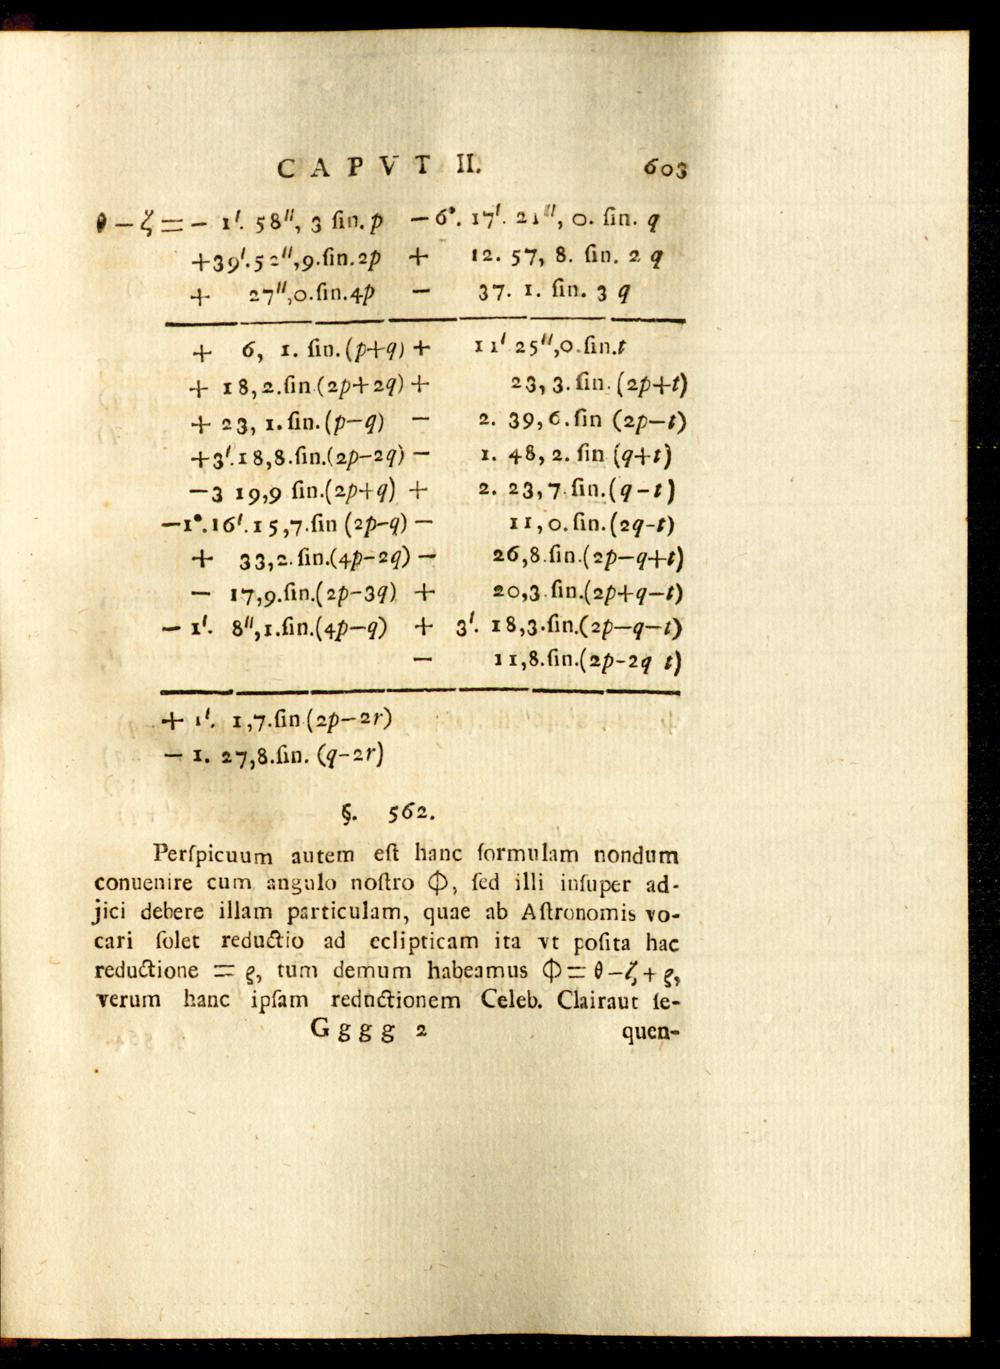 CAPVT II. 603
θ — ζ = — 1′. 58″, 3 ſin. p — 6°. 17′. 21″, 0. ſin. q
+39′.52″,9.ſin.2p + 12. 57, 8. ſin. 2 q
+ 27″,0.ſin.4p — 37. 1. ſin. 3 q
+ 6, 1. ſin.(p+q) + 11′ 25″,0.ſin.t
+ 18,2.ſin(2p+2q) + 23, 3. ſin. (2p+t)
+ 23, 1. ſin.(p—q) — 2. 39, 6. ſin (2p—t)
+3′.18,8.ſin.(2p—2q) — 1. 48, 2. ſin (q+t)
—3 19,9 ſin.(2p+q) + 2. 23,7.ſin.(q-t)
—1°.16′.15,7.ſin (2p-q) — 11,0.ſin.(2q-t)
+ 33,2.ſin.(4p—2q) — 26,8.ſin.(2p—q+t)
— 17,9.ſin.(2p—3q) + 20,3.ſin.(2p+q—t)
— 1′. 8″,1.ſin.(4p—q) + 3′. 18,3.ſin.(2p—q—t)
— 11,8.ſin.(2p-2q t)
+ 1′. 1,7.ſin(2p—2r)
— 1. 27,8.ſin. (q-2r)
§. 562.
Perſpicuum autem eſt hanc formulam nondum
conuenire cum angulo noſtro Φ, ſed illi inſuper ad-
jici debere illam particulam, quae ab Aſtronomis vo-
cari ſolet reductio ad eclipticam ita vt poſita hac
reductione = ρ, tum demum habeamus Φ = θ — ζ + ρ,
verum hanc ipſam reductionem Celeb. Clairaut ſe-
Gggg 2 quen-